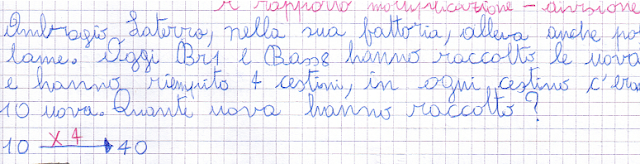 il rapporto moltiplicazione - divisione
Ambrogio Laterro, nella sua fattoria, alleva anche pol
lame. Oggi Br1 e Bass hanno raccolto le uova
e hanno riempito 4 cestini, in ogni cestino c'eran
10 uova. Quante uova hanno raccolto?
10 x4 → 40